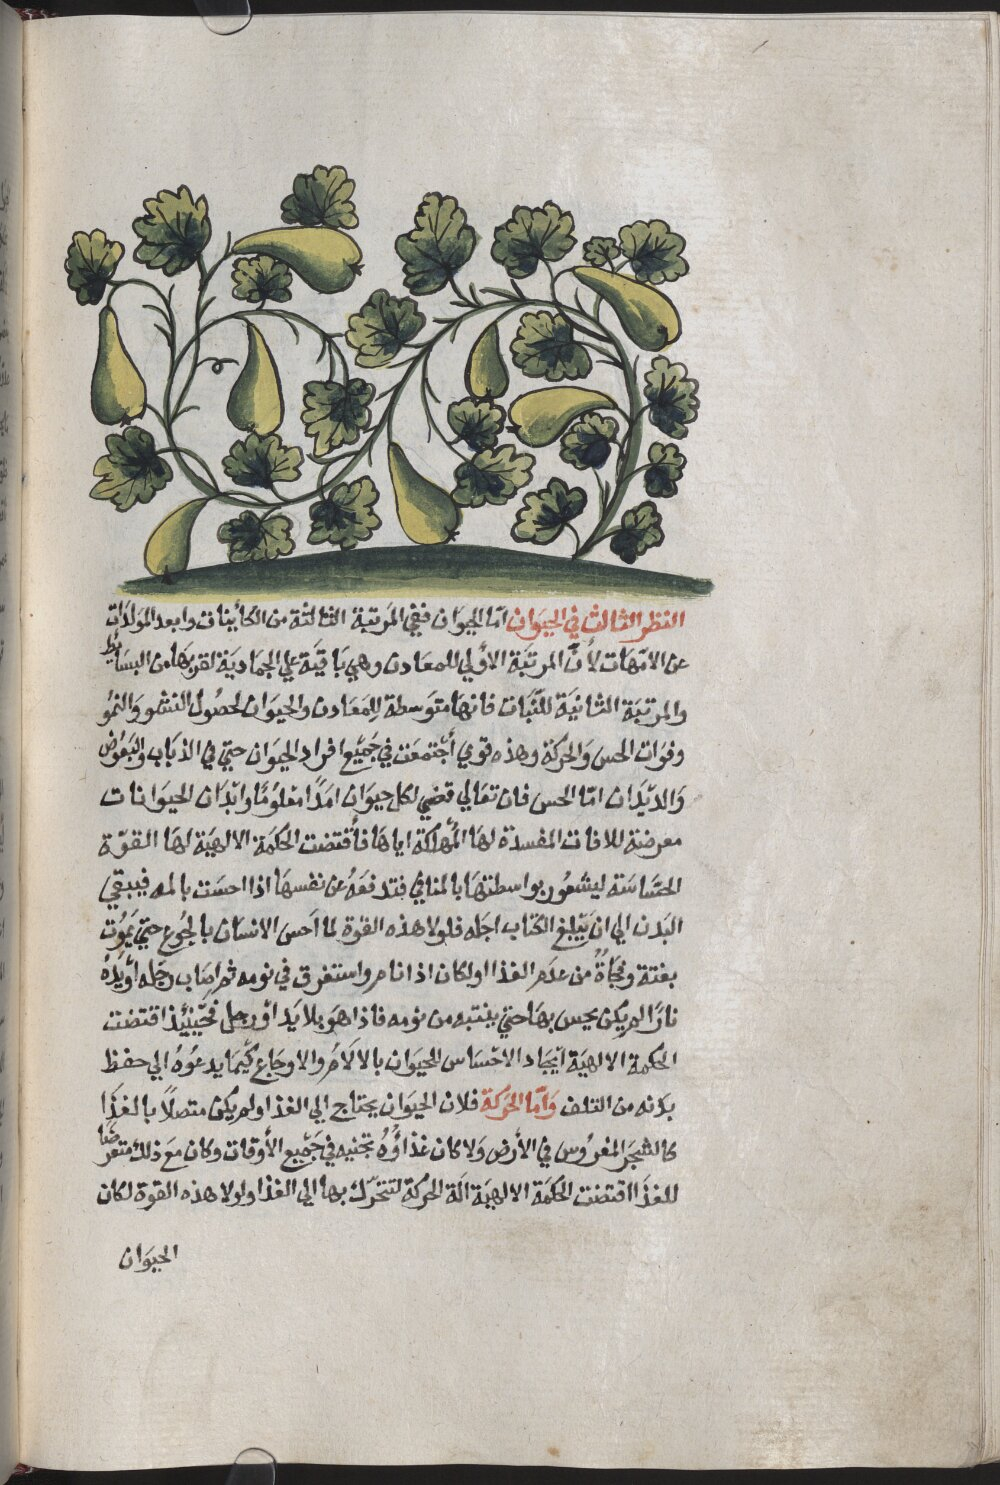 النظر الثالث في الحيوان امّا الحيوان ففي المرَتبة الثالثة من الكاينات وابعد المولدَات
عن الامّهات لأنّ المرتبَة الاوُلي للمعَادن وهي بَاقيَة علي الجماديَة لقربهَا من البسَايُط
والمرتبَة الثانيَة للنَّبَات فانهَا متوَسطة للمَعَادن والحيوَان لحصُول النشو وَالنموُ
وفوَات الحس وَالحركة وهذه قوي أجْتمعَت في جَميْع افراد الحيوَان حتيّ في الذبَاب والبَعوُض
وَالديْدَان امّا الحس فان تعَالي قضي لكل حيوَان امَدًا معْلوُمًا وابْدَان الحيوَانات
معرضة للافات المفسدة لهَا المُهْلكة اياهَا فأقتضت الحكمَة الالهيَة لهَا القوّة
الحسَّاسَة ليشعُور بواسطتهَا بالمنافي فتدفعَهُ عن نفسهَا اذا احسَت بالمه فيبقي
البَدن الي ان يَبْلغ الكتاب اجَله فلولا هذه القوة لما اَحس الانسَان بالجُوع حتيّ يَموُت
بغتة وفجَاةً من عدَم الغذا اولكان اذا نام واستغرق في نومه ثم اصَاب رجَله اوْيَدهُ
نارًا لم يكن يحس بهَا حتيّ ينتبه من نومه فاذا هوَ بلا يَد اوْ رجل فحيْنيْذ اقتضت
الحكمة الالهيَة ايجَاد الاحْسَاس للحيوَان بالالَامْ والاوجَاع كيْمَا يدعُوهُ الي حفظ
بدَنه من التلف وَامّا الحَركة فلان الحيوَان يحتاج الي الغذا ولم يكن متصلاً بالغذَا
كالشجَر المغروُس في الأرض وَلاكان غذاؤُهُ تجنيه في جَميْع الأوقات وكان معَ ذلك متعرضًا
للغذَا اقتضت الحكمَة الالهيَة الَة الحركة لتتحَرّك بهَا الي الغذا ولولا هذه القوة لكان
الحيوَان